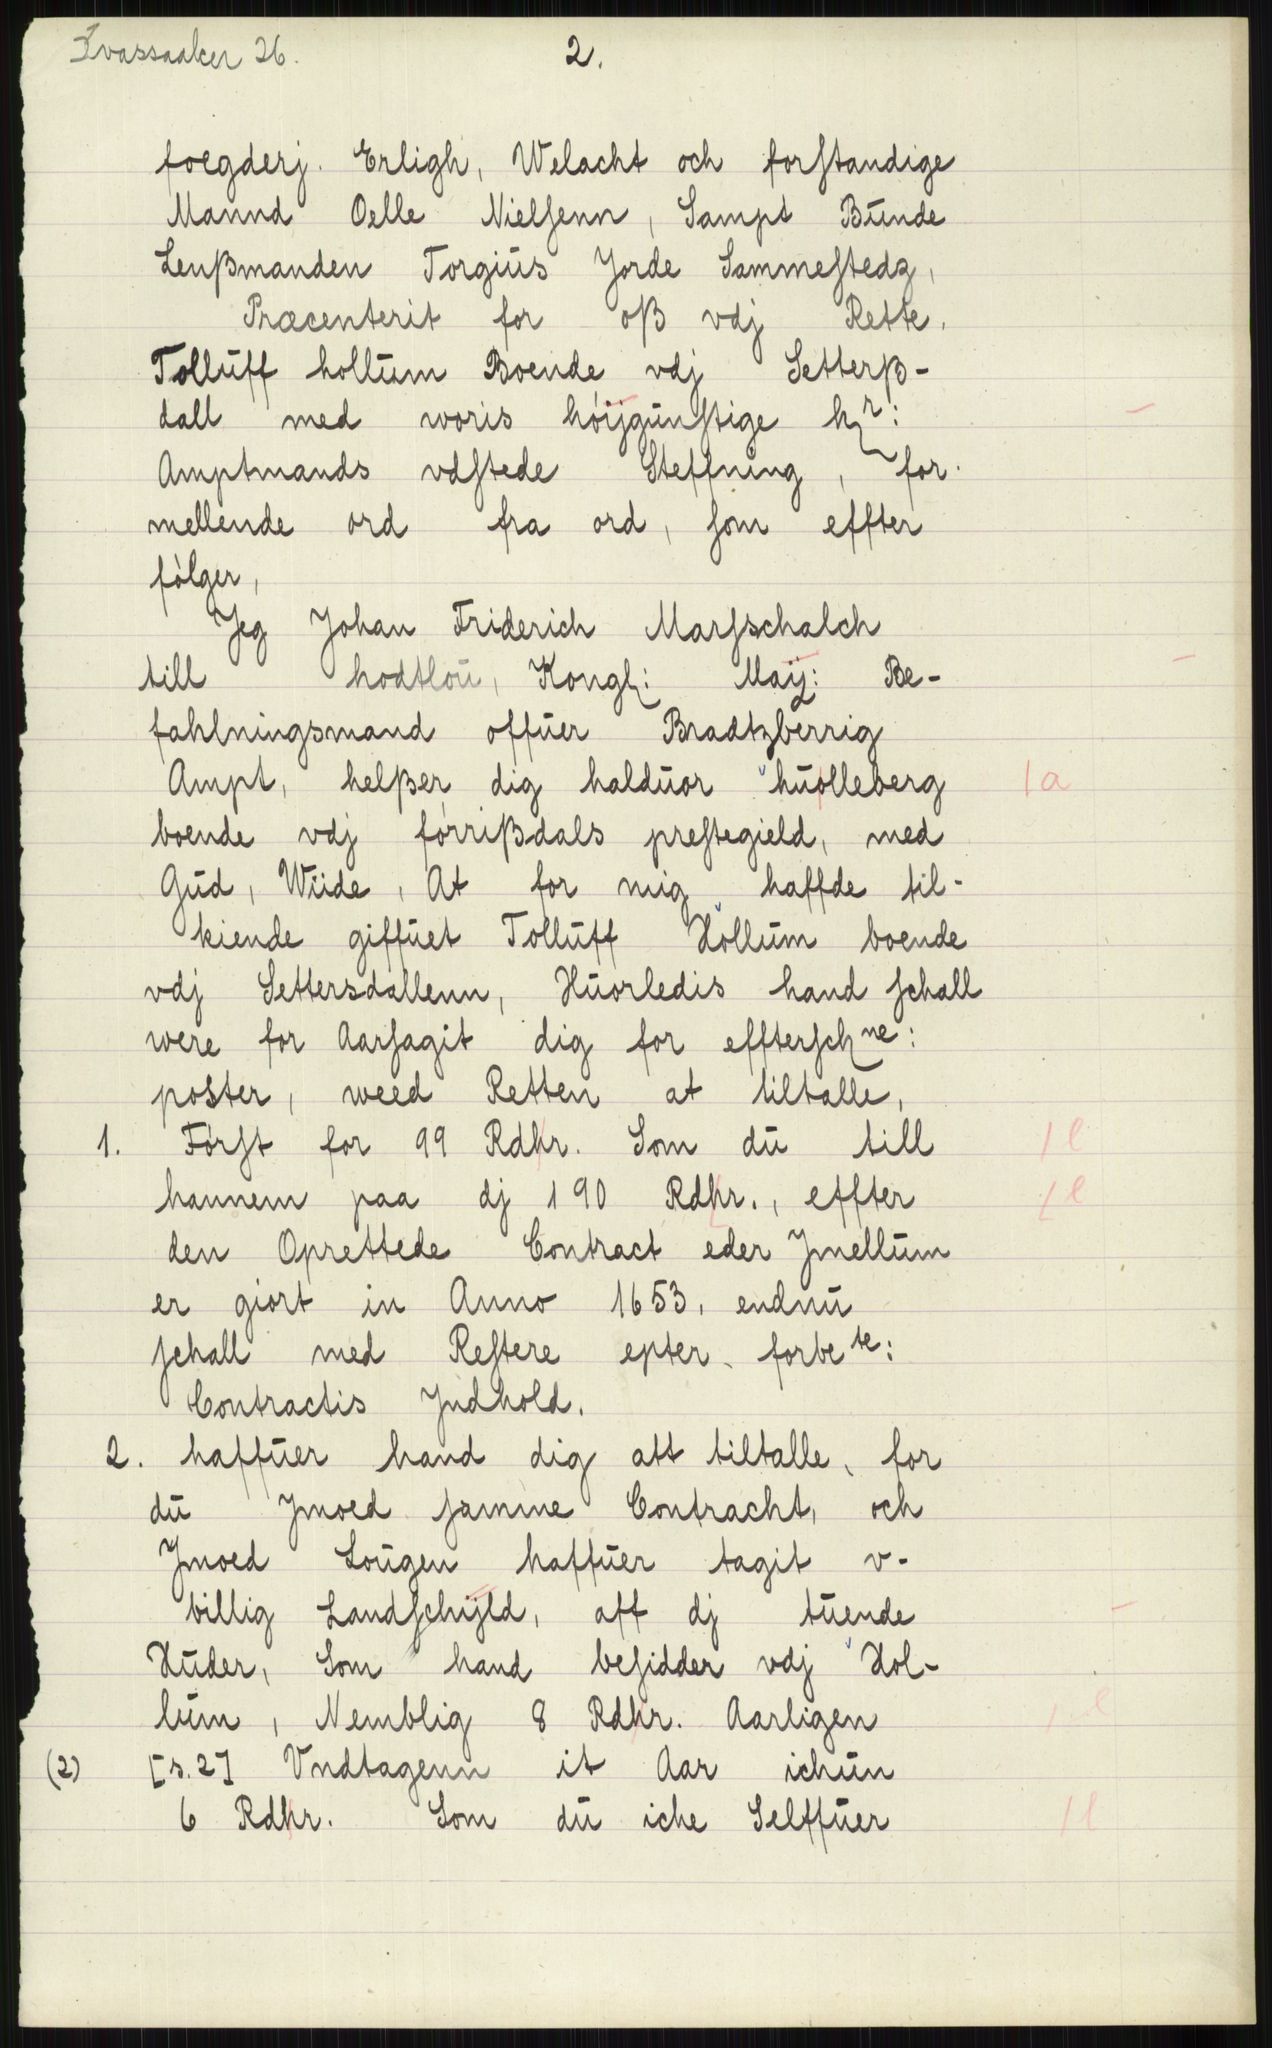 Kvassaaker 26.
2.
foegderj. Erligh, Welacht och forstandige
Mannd Oelle Nielsenn, Sampt Bunde
Lenßmanden Torgius Jorde Sammestedz,
Præcenterit for oß vdj Rette.
Tolluff hollum Boende vdj Setterß-
dall med woris høijgunstige hr:
Amptmands vdstede Steffning, for-
mellende ord fra ord, som effter
følger,
Jeg Johan Friderich Marsschalch
till hodtlou, Kongl: Maij: Be-
fahlningsmand offuer Bradtzberrig
Ampt, helßer dig halduor huolleberg
boende vdj førrißdals prestegield, med
Gud, Wiide, At for mig haffde til-
kiende giffuet Tolluff Hollum boende
vdj Settersdallenn, Huorledis hand schall
were for Aarsagit dig for efftersch ne:
poster, weed Retten at tiltalle,
1. Først for 99 Rdhr. Som du till
hannem paa dj 190 Rdhr., effter
den Oprettede Contract eder Jmellum
er giort in Anno 1653, endnu
schall med Restere epter forbe te:
Contractis Jndhold.
2. haffuer hand dig att tiltalle, for
du Jmoed samme Contracht, och
Jmoed Lougen haffuer tagit v-
billig Landschijld, aff dj tuende
Huder, Som hand besidder vdj Hol-
lum, Nemblig 8 Rdhr. Aarligen
(2) [s.2] Vndtagenn it Aar ichun
6 Rdhr. Som du iche Selffuer